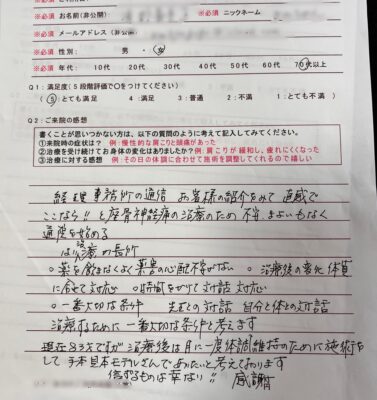 ※必須 お名前(非公開)
※必須 ニックネーム
※必須 メールアドレス(非公
※必須 性別: 男・女
※必須 年代: 10代 20代 30代 40代 50代 60代 70代以上
Q1:満足度(5段階評価で〇をつけてください)
(5:とても満足 4:満足 3:普通 2:不満 1:とても不満)
Q2:ご来院の感想
書くことが思いつかない方は、以下の質問のように考えて記入してみてください。
①来院時の症状は? 例:慢性的な肩こりと頭痛があった
②治療を受け続けてお身体の変化はありましたか? 例:肩こりが緩和し、疲れにくくなった
③治療に対する感想 例:その日の体調に合わせて施術を調整してくれるので嬉しい
経理事務所の通信 お客様の紹介をみて 直感で
ここなら!!と座骨神経痛の治療のため 不安、まよいもなく
通院を始める
はり治療の長所
○薬を飲まなくてよく 薬害の心配不安がない ○治療後の変化 体質
に合せて対応 ○時間をかけて対話 対応
○一番大切な条件 先生との対話 自分と体との対話
治療するために 一番大切な条件と考えます
現在83才ですが 治療後は月に一度体調維持のために施術を
して 手本見本モデルさんでありたいと考えております
信ずるものは幸なり!! 感謝